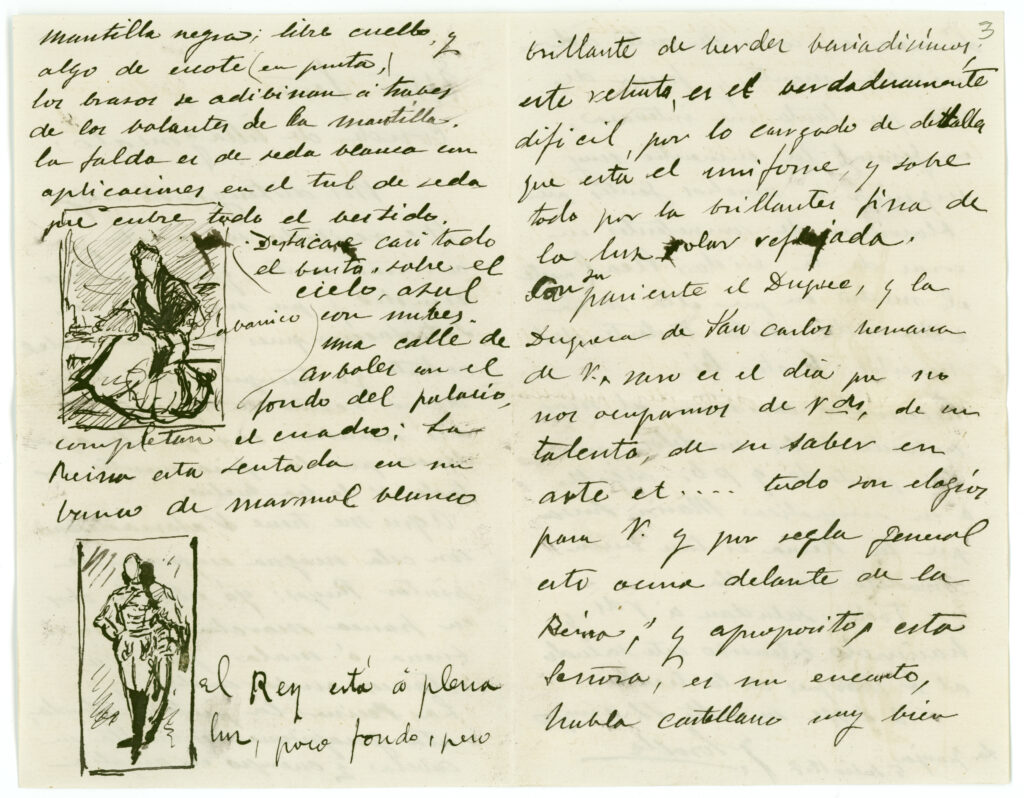 mantilla negra; libre cuello, y
algo de escote (en punta,)
los brasos se adibinan á trabes
de los bolantes de la mantilla.
la falda es de seda blanca con
aplicaciones en el tul de seda
que cubre todo el bestido.
Destacase casi todo
el busto, sobre el
cielo, azul
abanico
con nubes.
una calle de
arboles con el
fondo del palacio,
completan el cuadro; La
Reina esta sentada en un
banco de marmol blanco
el Rey está á plena
luz, poco fondo, pero
3
brillante de berdes bariadisimos.
este retrato, es el berdaderamente
dificil, por lo cargado de detalles
que esta el uniforme, y sobre
todo por la brillantes fina de
la luz solar reflejada.
Con su pariente el Duque, y la
Duquesa de San Carlos hermana
de V. raro es el dia que no
nos ocupamos de Vdes, de su
talento, de su saber en
arte et..... todo son elogios
para V. y por regla general
esto ocurre delante de la
Reina, y aproposito, esta
Señora, es un encanto,
habla castellano muy bien